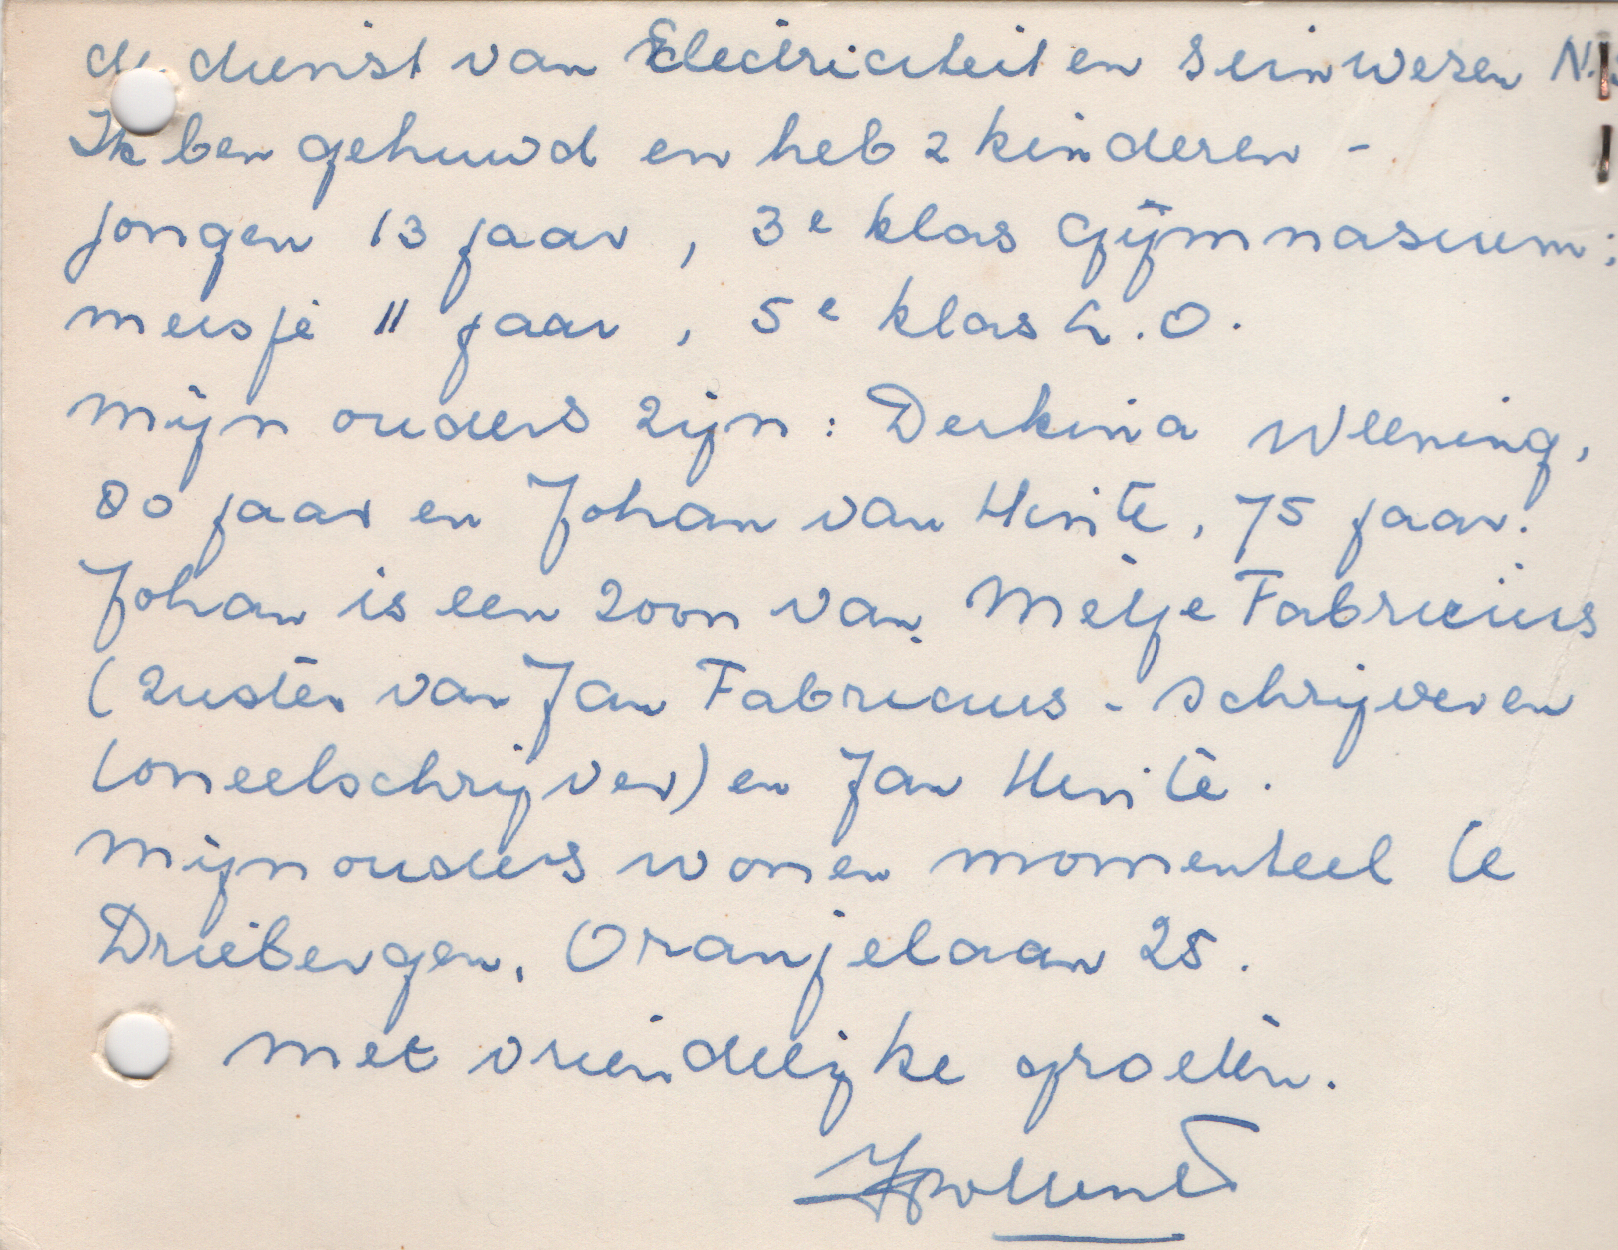 de dienst van Electriciteit en Seinwezen N.
Ik ben gehuwd en heb 2 kinderen -
jongen 13 jaar, 3e klas Gymnasium;
meisje 11 jaar, 5e klas L.O.
Mijn ouders zijn: Derkina Weening,
80 jaar en Johan van Heinte, 75 jaar.
Johan is een zoon van Metje Fabricius
(zuster van Jan Fabricius - schrijver en
toneelschrijver) en Jan Heinte.
Mijn ouders wonen momenteel te
Driebergen, Oranjelaan 25.
met vriendelijke groeten.